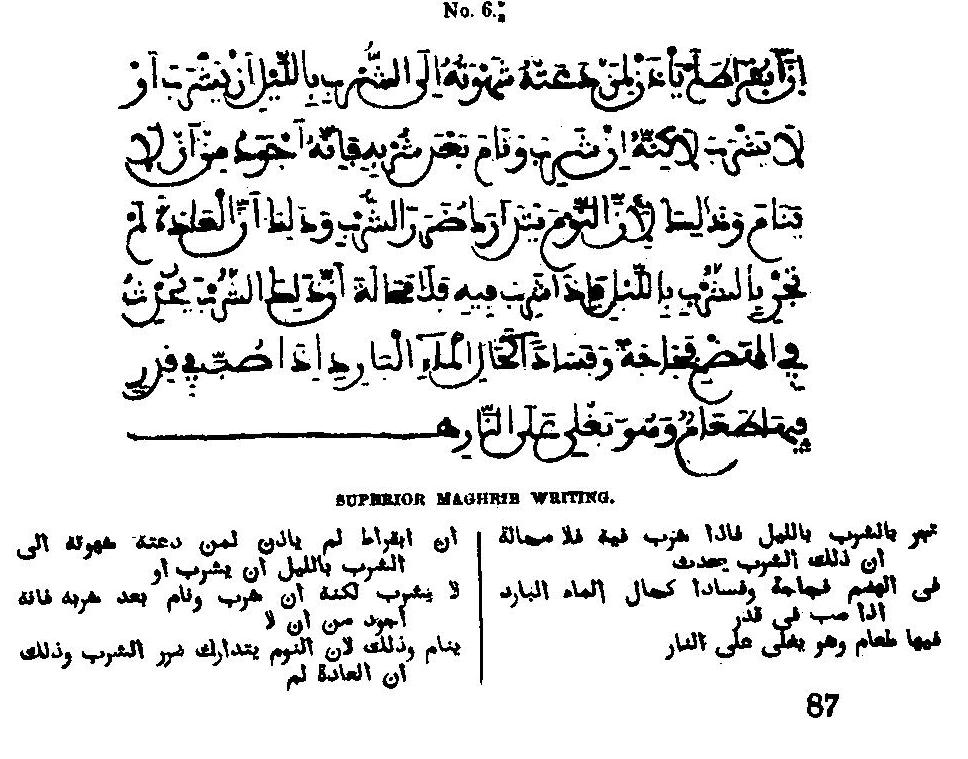 No. 6.
إن أبقراط لم يأذن لمن دعته شهوته إلى الشرب بالليل أن يشرب أو
لا يشرب لاكنه إن شرب ونام بعد شربه فإنه أجود من أن لا
ينام وذلك لأن النوم يتدارك ضرر الشرب وذلك أن العادة لم
تجر بالشرب بالليل فإذا شرب فيه فلا محالة أن ذلك الشرب يحدث
في الهضم فجاجة وفسادا كحال الماء البارد إذا صب في قدر
فيها طعام وهو يغلي على النار
SUPERIOR MAGHRIB WRITING.
ان ابقراط لم ياذن لمن دعتة شهوتة الى
الشرب بالليل ان يشرب او
لا يشرب لكنة ان شرب ونام بعد شربه فانة
اجود من ان لا
ينام وذلك لان النوم يتدارك ضرر الشرب وذلك
ان العادة لم
تجر بالشرب بالليل فاذا شرب فية فلا محالة
ان ذلك الشرب يحدث
فى الهضم فجاجة وفسادا كحال الماء البارد
اذا صب فى قدر
فيها طعام وهو يغلى على النار
87